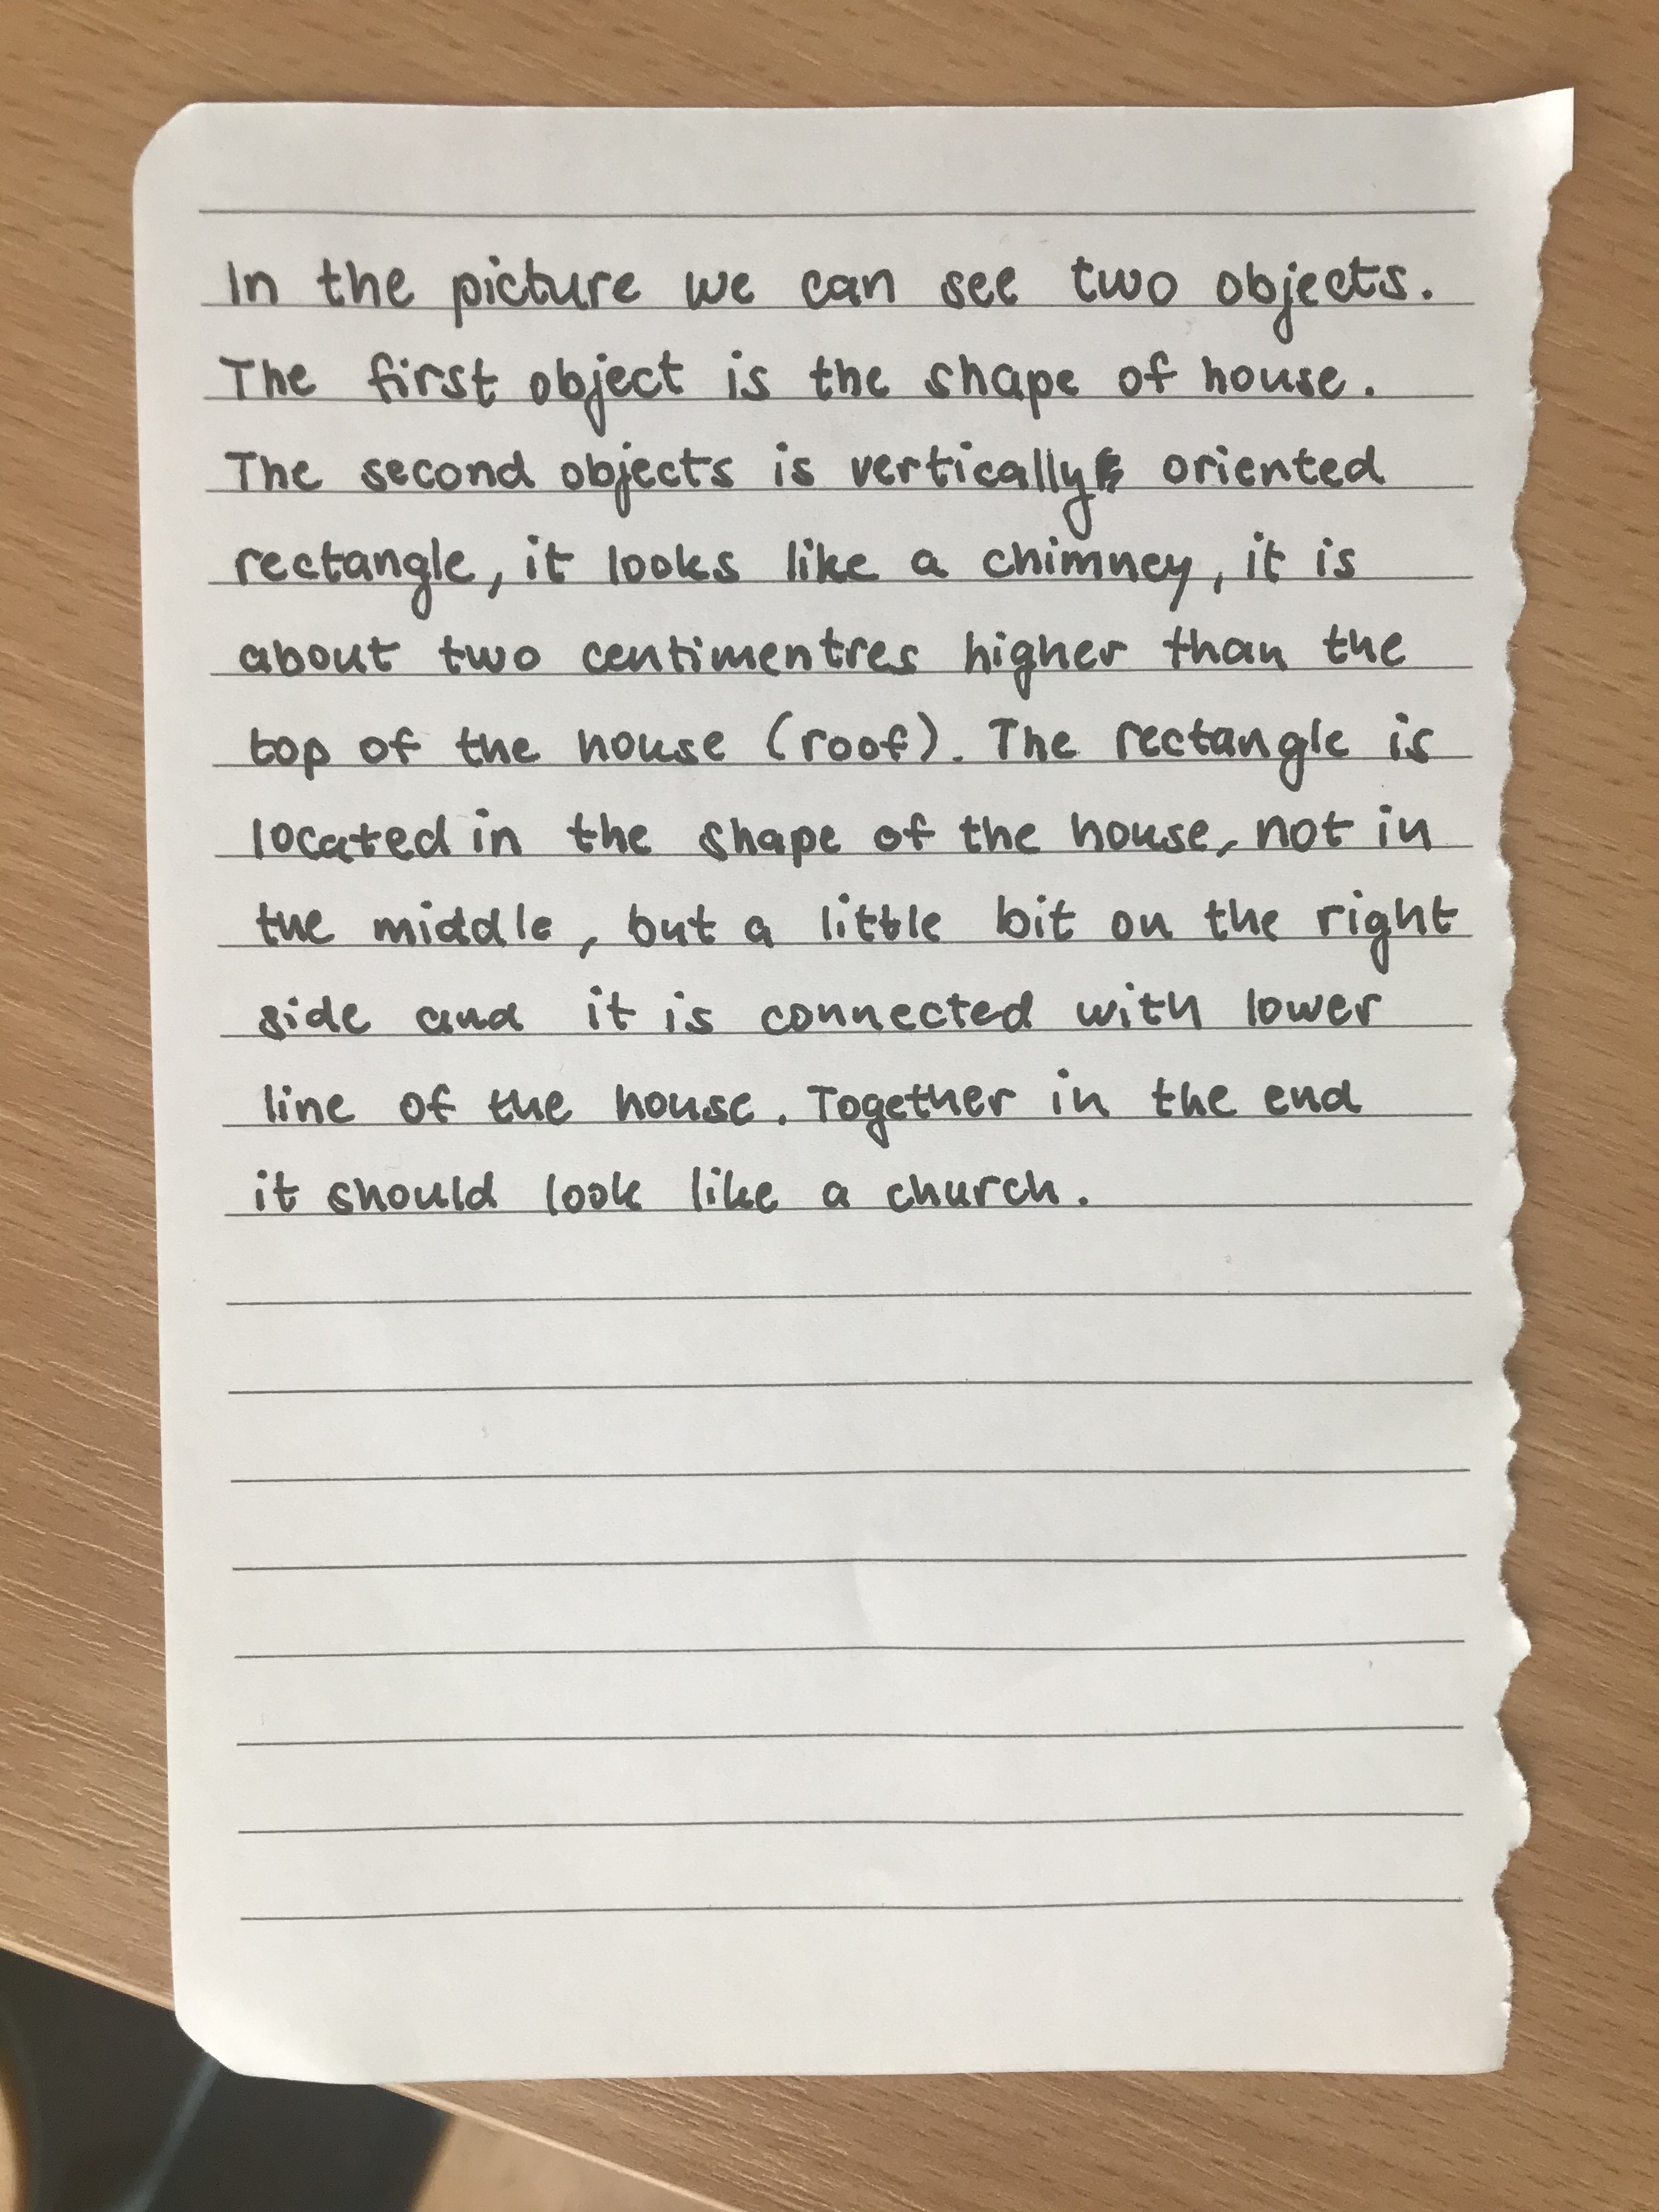 In the picture we can see two objects.
The first object is the shape of house.
The second objects is vertically oriented
rectangle, it looks like a chimney, it is
about two centimentres higher than the
top of the house (roof). The rectangle is
located in the shape of the house, not in
the middle, but a little bit on the right
side and it is connected with lower
line of the house. Together in the end
it should look like a church.